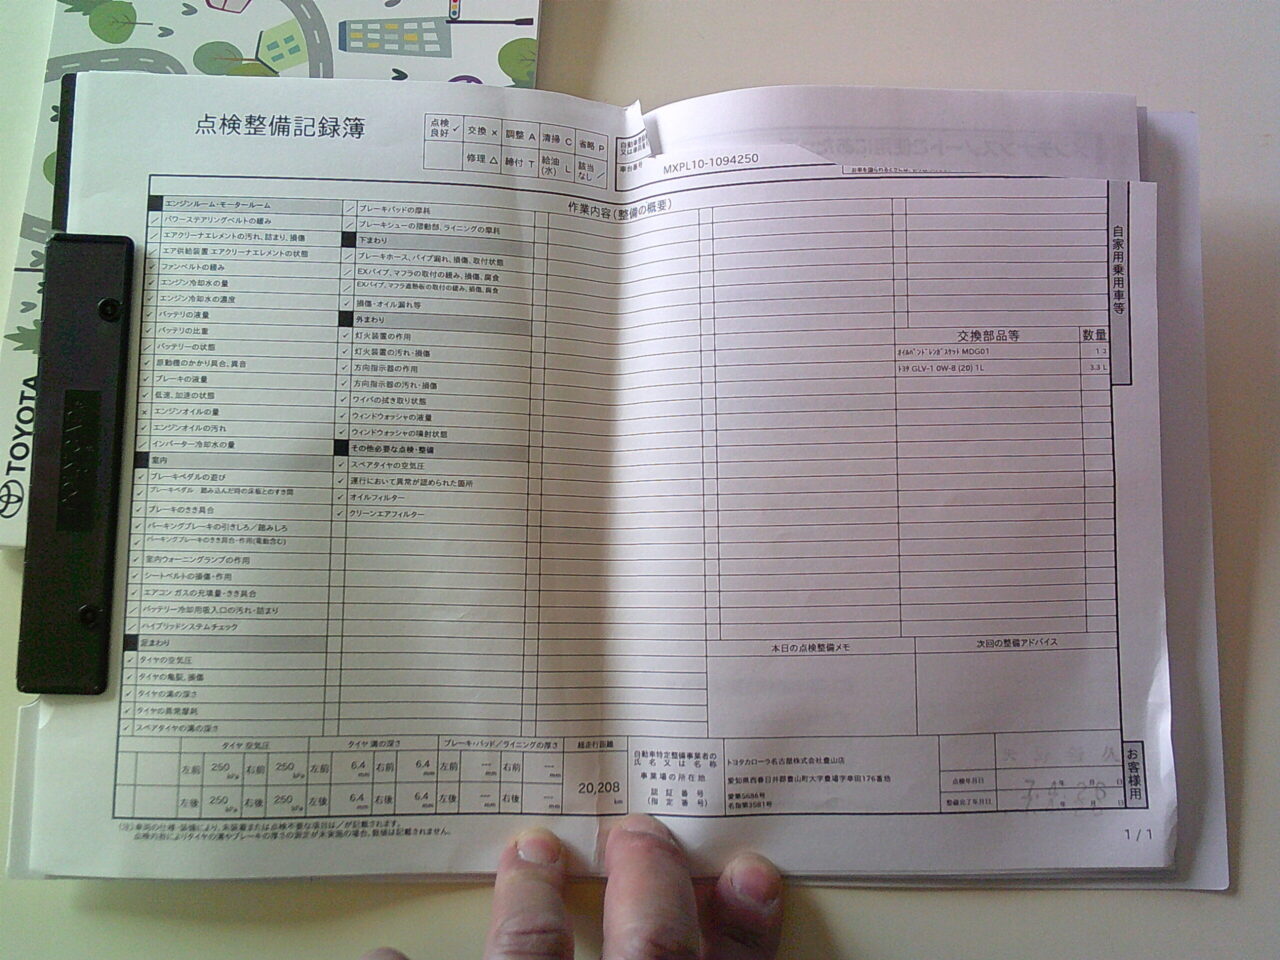 点検整備記録簿
点検良好 ✓ 交換 × 調整 A 清掃 C 省略 P
修理 △ 締付 T 給油(水) L 該当なし ／
車台番号 MXPL10-1094250
作業内容(整備の概要)
エンジンルーム・モータールーム
パワーステアリングベルトの緩み
エアクリーナエレメントの汚れ、詰まり、損傷
エア供給装置 エアクリーナエレメントの状態
ファンベルトの緩み
エンジン冷却水の量
エンジン冷却水の濃度
バッテリの液量
バッテリの比重
バッテリーの状態
原動機のかかり具合、異音
ブレーキの液量
低速、加速の状態
エンジンオイルの量
エンジンオイルの汚れ
インバーター冷却水の量
室内
ブレーキペダルの遊び
ブレーキペダル 踏み込んだ時の床板とのすき間
ブレーキのきき具合
パーキングブレーキの引きしろ／踏みしろ
パーキングブレーキのきき具合・作用(電動含む)
室内ウォーニングランプの作用
シートベルトの損傷・作用
エアコン ガスの充填量・きき具合
バッテリー冷却用吸入口の汚れ・詰まり
ハイブリッドシステムチェック
足まわり
タイヤの空気圧
タイヤの亀裂、損傷
タイヤの溝の深さ
タイヤの異常摩耗
スペアタイヤの溝の深さ
ブレーキパッドの摩耗
ブレーキシューの摺動部、ライニングの摩耗
下まわり
ブレーキホース、パイプ漏れ、損傷、取付状態
EXパイプ、マフラの取付の緩み、損傷、腐食
EXパイプ、マフラ遮熱板の取付の緩み、損傷、腐食
損傷・オイル漏れ等
外まわり
灯火装置の作用
灯火装置の汚れ・損傷
方向指示器の作用
方向指示器の汚れ・損傷
ワイパの拭き取り状態
ウィンドウォッシャの液量
ウィンドウォッシャの噴射状態
その他必要な点検・整備
スペアタイヤの空気圧
運行において異常が認められた箇所
オイルフィルター
クリーンエアフィルター
交換部品等 数量
ｵｲﾙﾊﾟﾝﾄﾞﾚﾝｶﾞｽｹｯﾄ MDG01 1 コ
ﾄﾖﾀ GLV-1 0W-8 (20) 1L 3.3 L
自家用乗用車等
本日の点検整備メモ
次回の整備アドバイス
タイヤ空気圧 タイヤ溝の深さ ブレーキ・パッド／ライニングの厚さ 総走行距離
左前 250 kPa 右前 250 kPa 左前 6.4 mm 右前 6.4 mm 左前 --- mm 右前 --- mm
左後 250 kPa 右後 250 kPa 左後 6.4 mm 右後 6.4 mm 左後 --- mm 右後 --- mm
20,208 km
自動車特定整備事業者の氏名又は名称 トヨタカローラ名古屋株式会社豊山店
事業場の所在地 愛知県西春日井郡豊山町大字豊場字幸田176番地
認証番号 愛第5686号
(指定番号) 名指第3581号
点検年月日 年 月 日
整備完了年月日 年 月 日
お客様用
(注)車両の仕様・装備により、未装着または点検不要な項目は／が記載されます。
点検の際によりタイヤの溝やブレーキの厚さの測定が未実施の場合、数値は記載されません。
1 / 1
TOYOTA